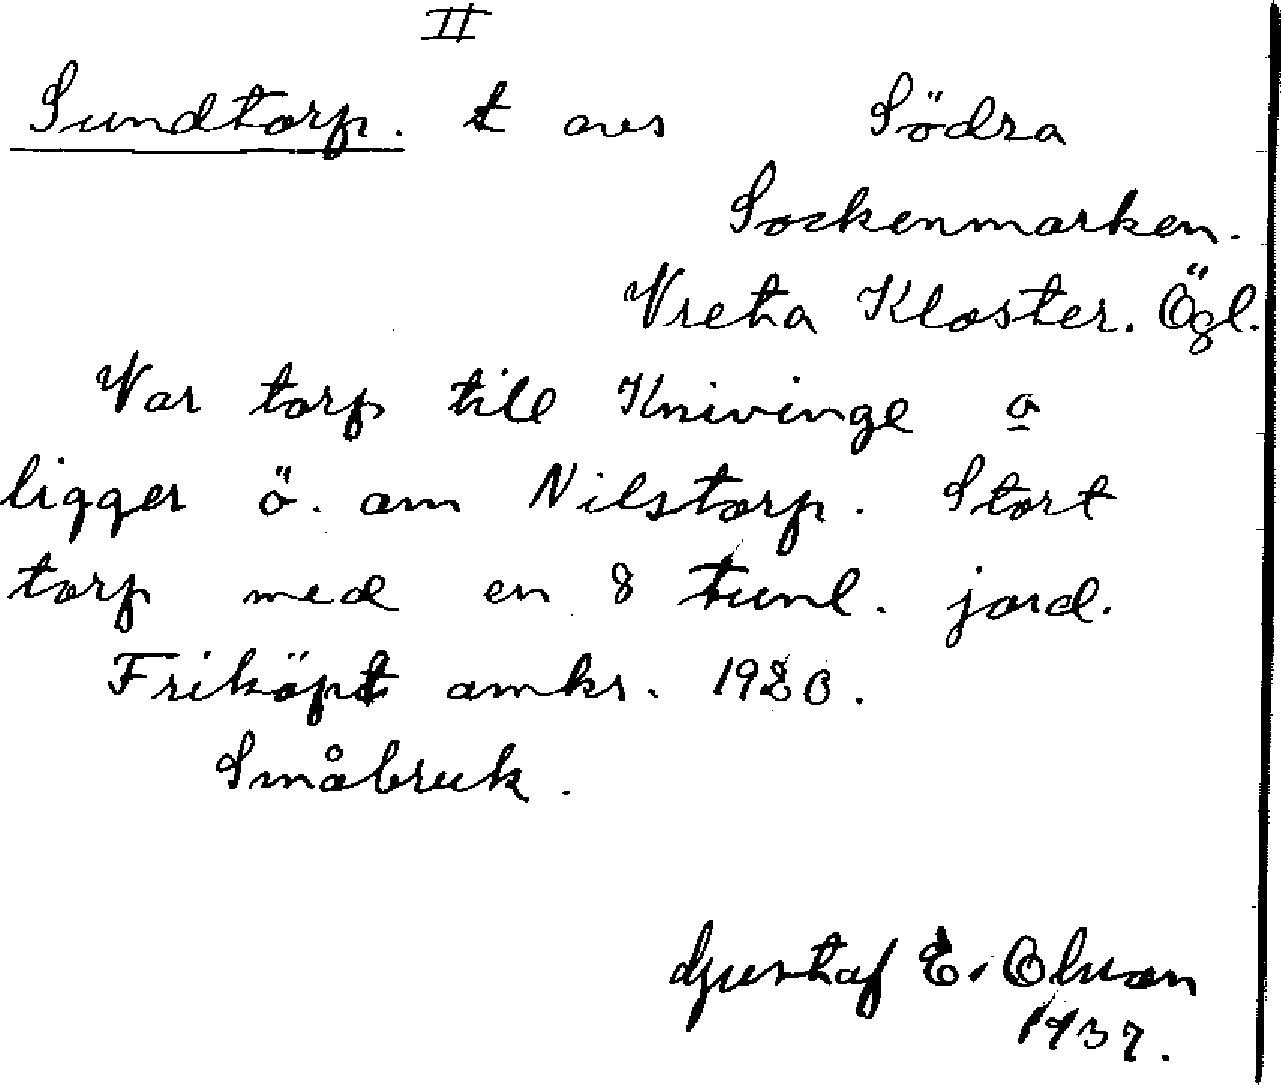 II
Sundtorp. t avs Södra
Sockenmarken.
Vreta Kloster. Ögl.
Var torp till Knivinge o
ligger ö. om Nilstorp. Stort
torp med en 8 tunl. jord.
Friköpt omkr. 1920.
Småbruk.
Gustaf E. Olson
1937.